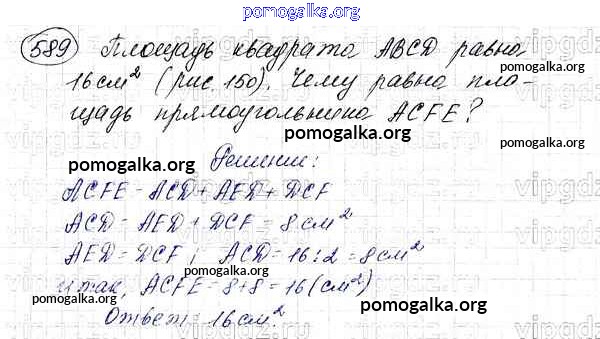 pomogalka.org
589 Площадь квадрата ABCD равна
16 см² (рис. 150). Чему равна пло-
pomogalka.org
щадь прямоугольника ACFE?
pomogalka.org
pomogalka.org
Решение:
ACFE = ACD + AED + DCF
pomogalka.org
ACD = AED + DCF = 8 см²
pomogalka.org
AED = DCF; ACD = 16 : 2 = 8 см²
pomogalka.org
итак, ACFE = 8 + 8 = 16 (см²)
pomogalka.org
pomogalka.org
Ответ: 16 см².